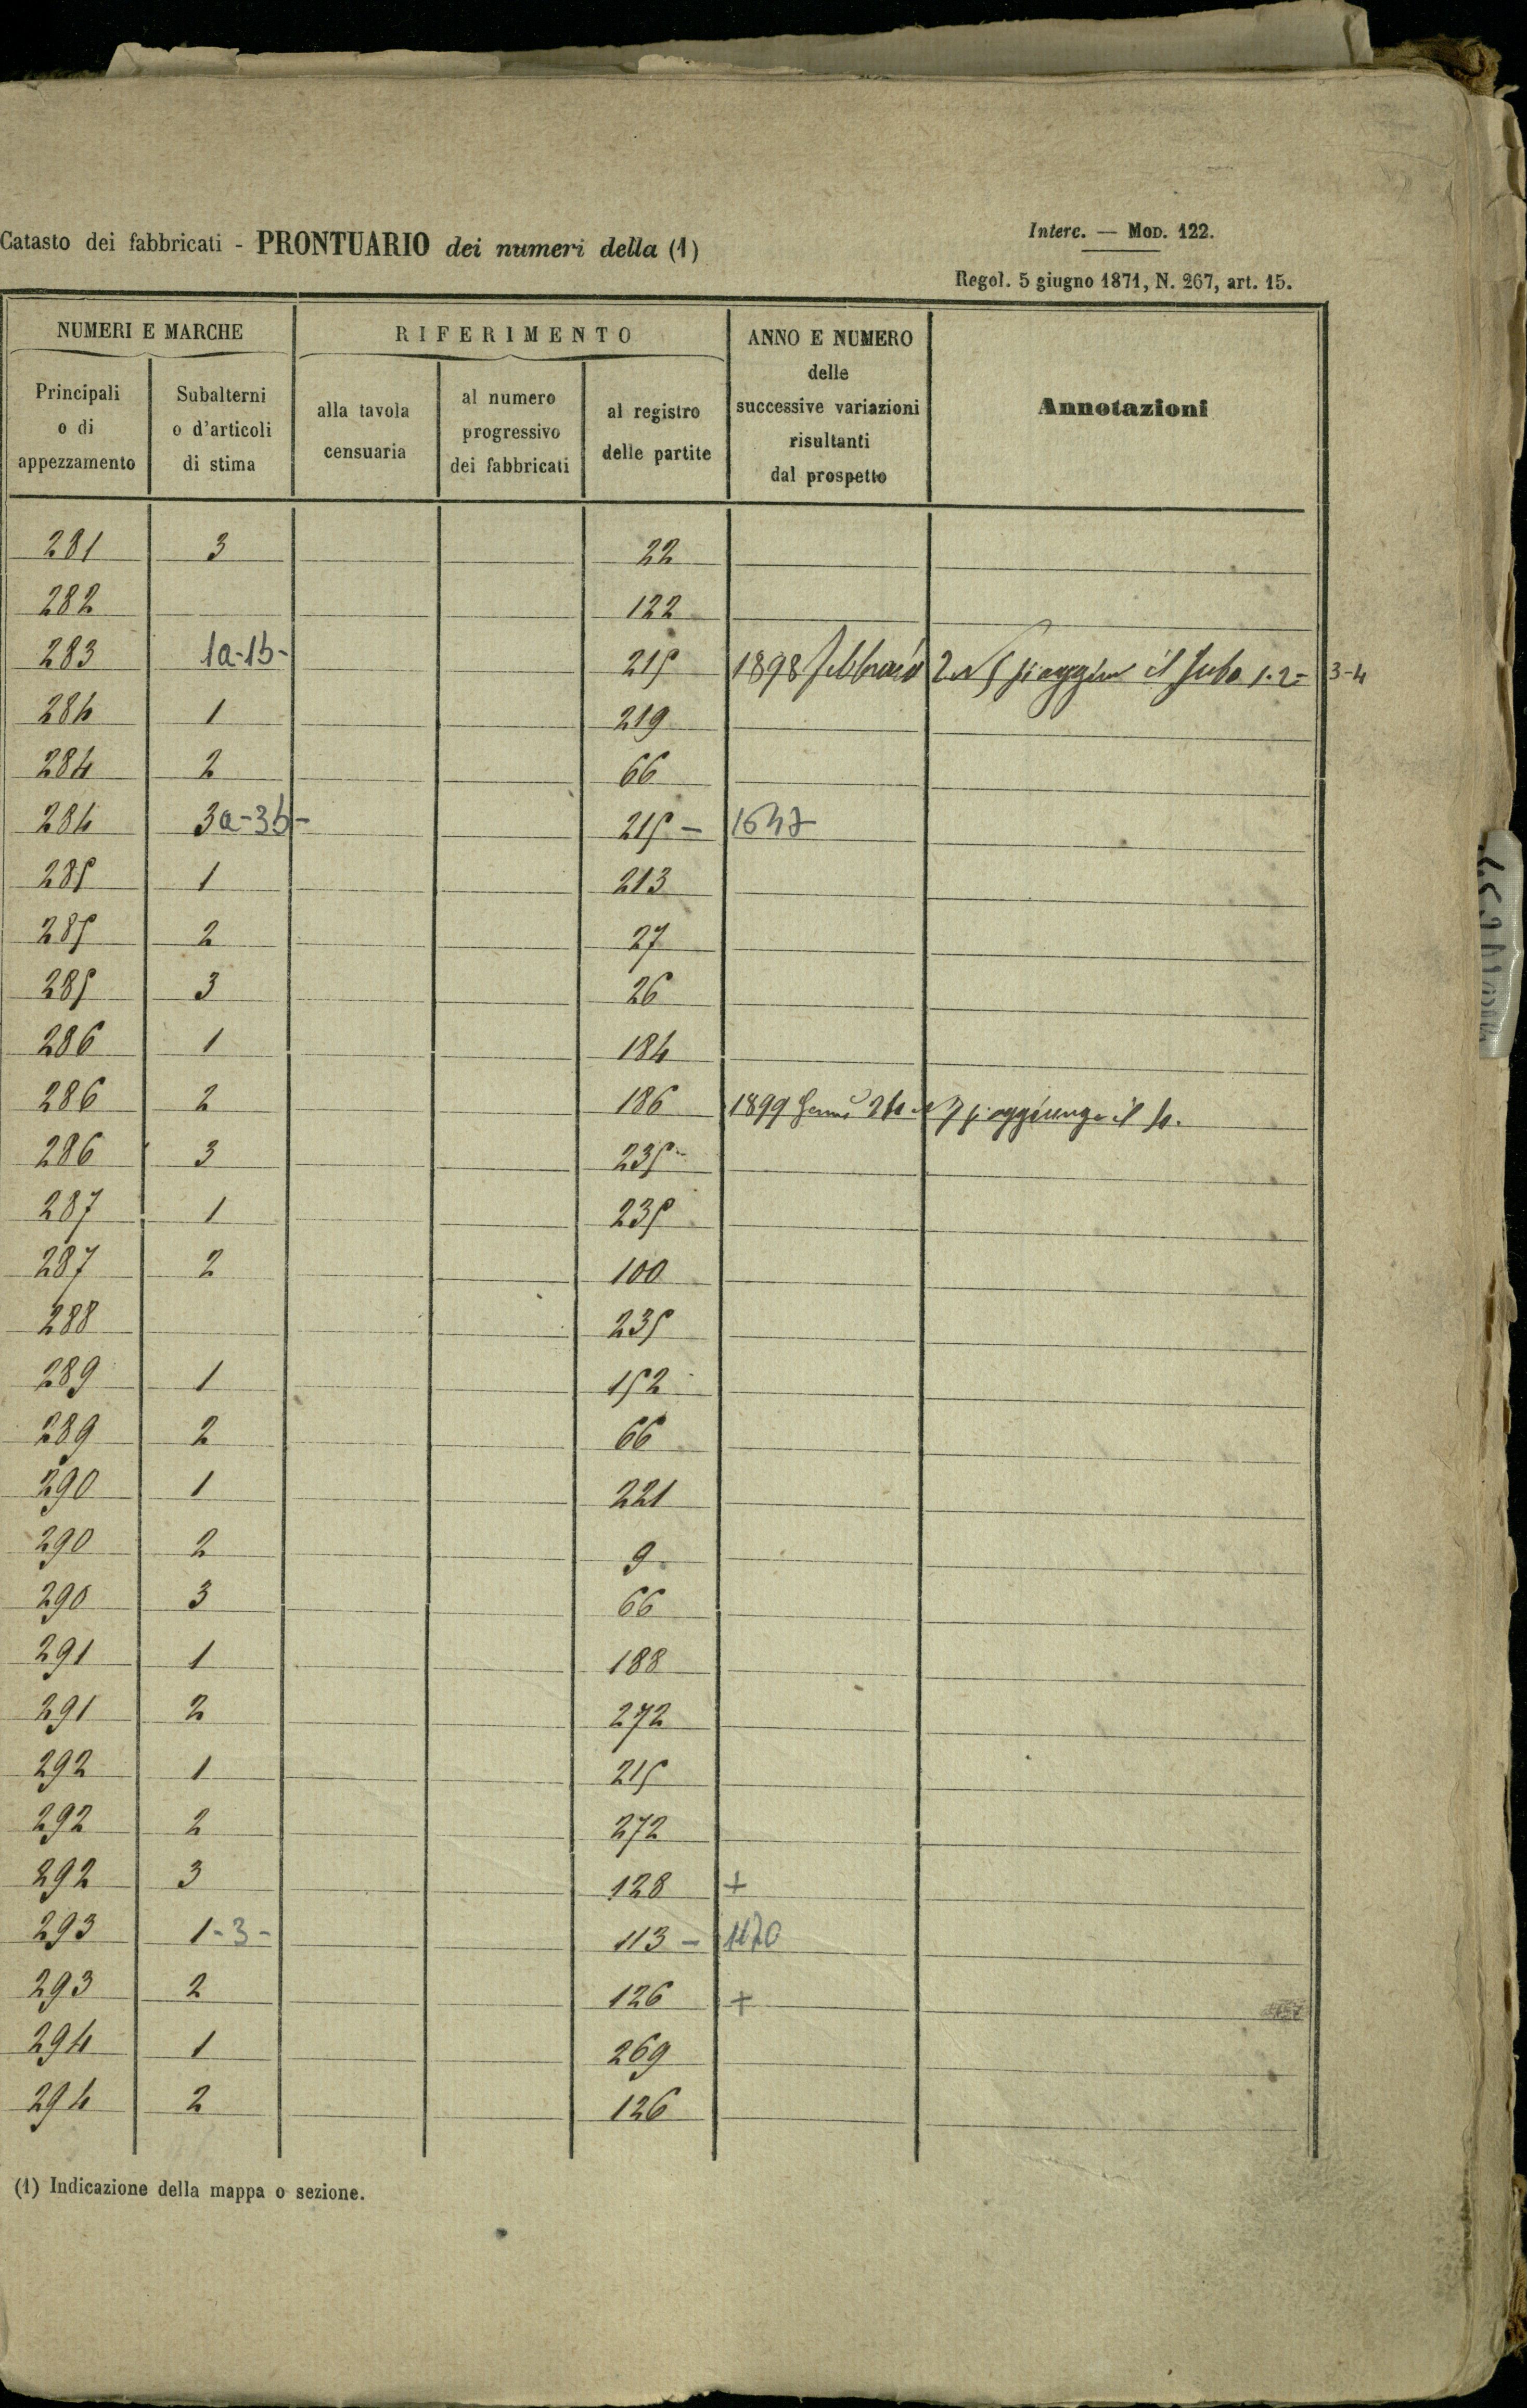 Catasto dei fabbricati - PRONTUARIO dei numeri della (1)
Interc. — Mod. 122.
Regol. 5 giugno 1871, N. 267, art. 15.
NUMERI E MARCHE RIFERIMENTO ANNO E NUMERO delle successive variazioni risultanti dal prospetto Annotazioni
Principali o di appezzamento Subalterni o d'articoli di stima alla tavola censuaria al numero progressivo dei fabbricati al registro delle partite
281 3 22
282 122
283 1a-1b- 215 1898 febbraio 2 N 5 si aggiun il Sub 1-2= 3-4
284 1 219
284 2 66
284 3a-3b- 215 - 1647
285 1 213
285 2 27
285 3 26
286 1 184
286 2 186 1899 24 N 7 si aggiunge il 4.
286 3 235
287 1 235
287 2 100
288 235
289 1 152
289 2 66
290 1 221
290 2 9
290 3 66
291 1 188
291 2 272
292 1 215
292 2 272
292 3 128 +
293 1-3- 113 - 1170
293 2 126 +
294 1 269
294 2 126
(1) Indicazione della mappa o sezione.